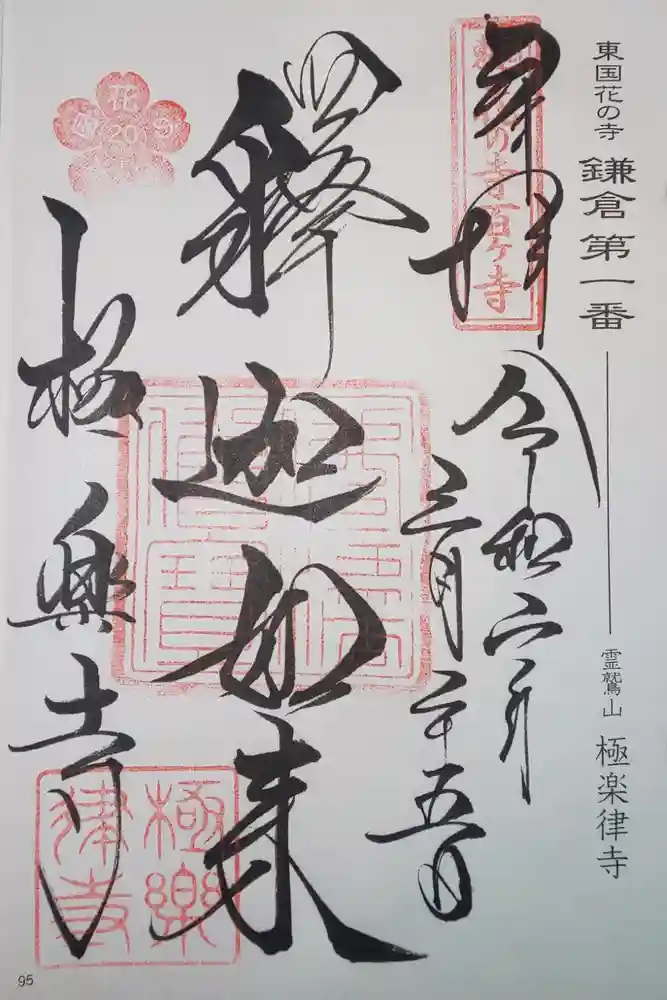 東国花の寺 鎌倉第一番
霊鷲山 極楽律寺
奉拝
令和六年
三月二十五日
の寺百ケ寺
釋迦如来
佛法僧寶
花
20
極樂寺
極樂
律寺
95